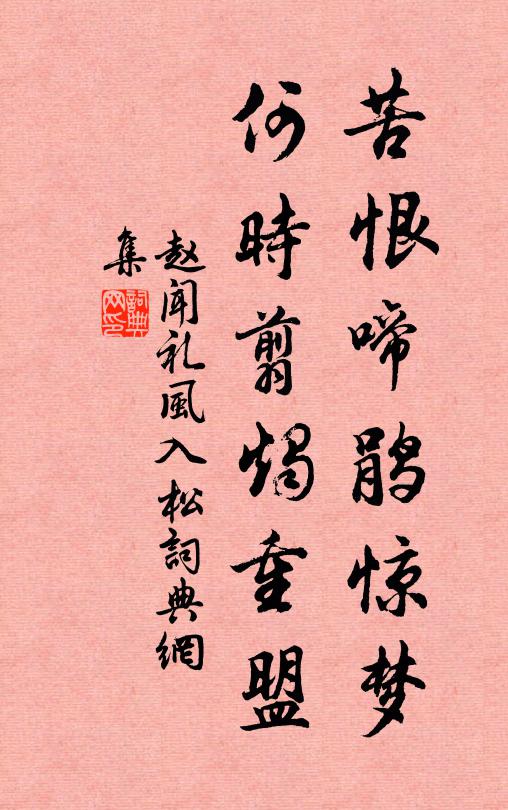 苦恨啼鹃惊梦
何時翦燭重盟
赵闻礼風入松詞典網
集
詞典网印